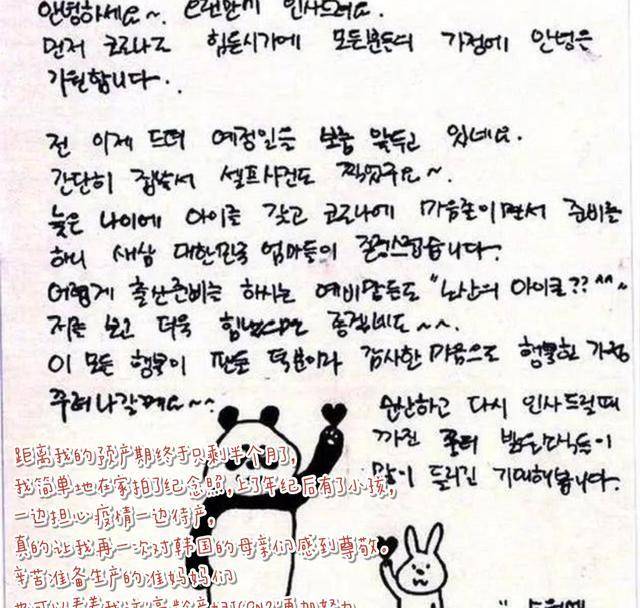 안녕하세요~. 오랜만에 인사드려요.
먼저 코로나로 힘든시기에 모든분들의 가정에 안녕을
기원합니다..
전 이제 드뎌 예정일을 보름 앞두고 있네요.
간단히 집에서 셀프사진도 찍었구요~.
늦은 나이에 아이를 갖고 코로나에 마음졸이면서 준비를
하니 새삼 대한민국 엄마들이 존경스럽습니다.
어렵게 출산준비를 하시는 예비맘들도 "노산의 아이콘?? ^^~
저를 보고 더욱 힘냈으면 좋겠네요~~.
이 모든 행복이 팬분들 덕분이라 감사한 마음으로 행복한 가정
꾸려나갈께요~~
순산하고 다시 인사드릴때
까진 좀더 밝은소식들이
많이 들리길 기대해봅니다.
距离我的预产期终于只剩半个月了,
我简单地在家拍了纪念照,上了年纪后有了小孩,
一边担心疫情一边待产,
真的让我再一次对韩国的母亲们感到尊敬。
辛苦准备生产的准妈妈们